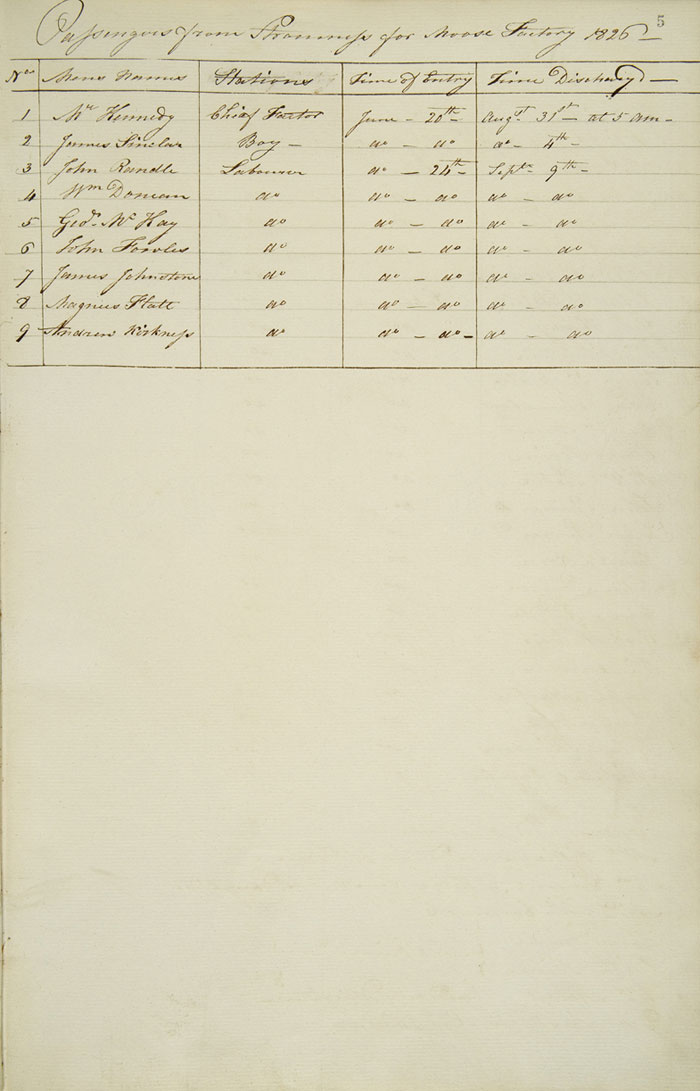 5
Passengers from Stromness for Moose Factory 1826
Nos Mens Names Stations Time of Entry Time Dischargd
1 Mr Kennedy Chief Factor June - 20th - Augst 31st - at 5 am -
2 James Sinclar Boy - do - do do - 4th -
3 John Randle Labourer do - 24th - Septr 9th -
4 Wm Duncan do do - do do - do
5 Geo. Mc Kay do do - do do - do
6 John Fowles do do - do do - do
7 James Johnstone do do - do do - do
8 Magnus Flatt do do - do do - do
9 Andrew Kirkness do do - do - do - do